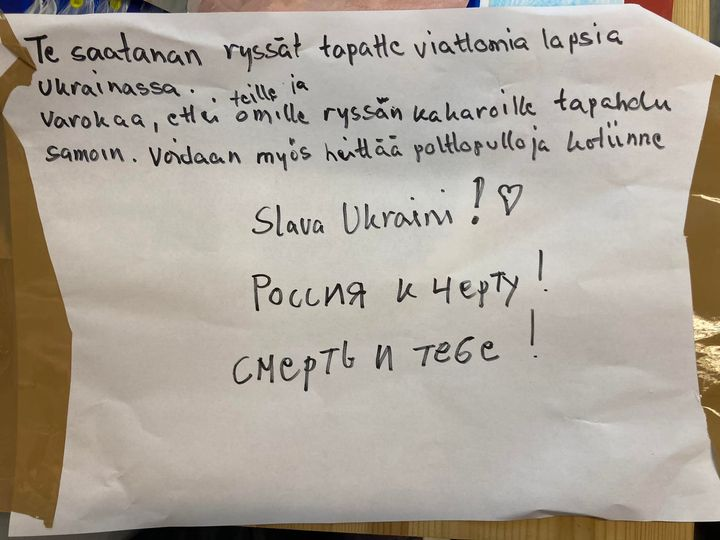 Te saatanan ryssät tapatte viattomia lapsia
Ukrainassa.
teille ja
varokaa, ettei omille ryssän kakaroille tapahdu
samoin. Voidaan myös heittää polttopulloja kotiinne
Slava Ukraini! ♡
Россия к черту!
Смерть и тебе!